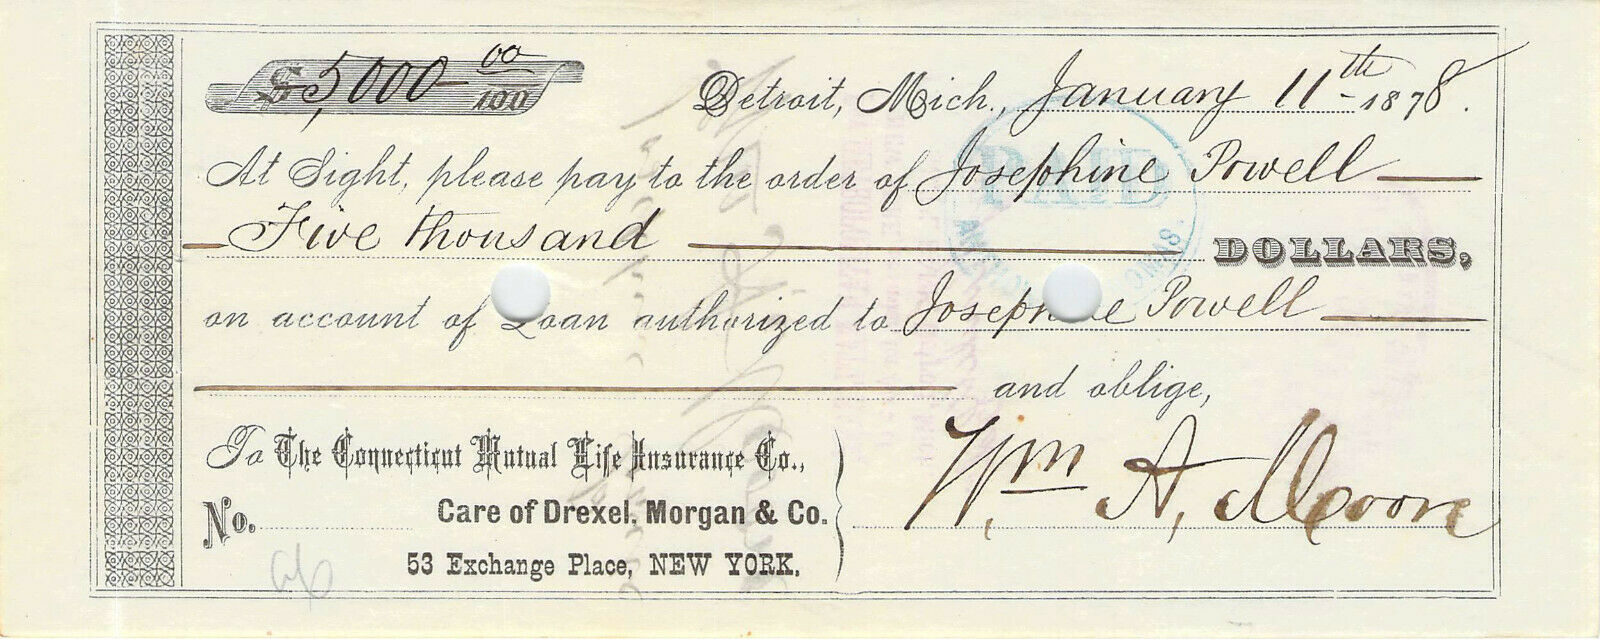 $5,000 00/100
Detroit, Mich., January 11th 1878.
At Sight, please pay to the order of Josephine Powell
Five thousand DOLLARS,
on account of Loan authorized to Josephine Powell
and oblige,
To The Connecticut Mutual Life Insurance Co.,
No. Care of Drexel, Morgan & Co.
53 Exchange Place, NEW YORK.
Wm A. Moore
PAID